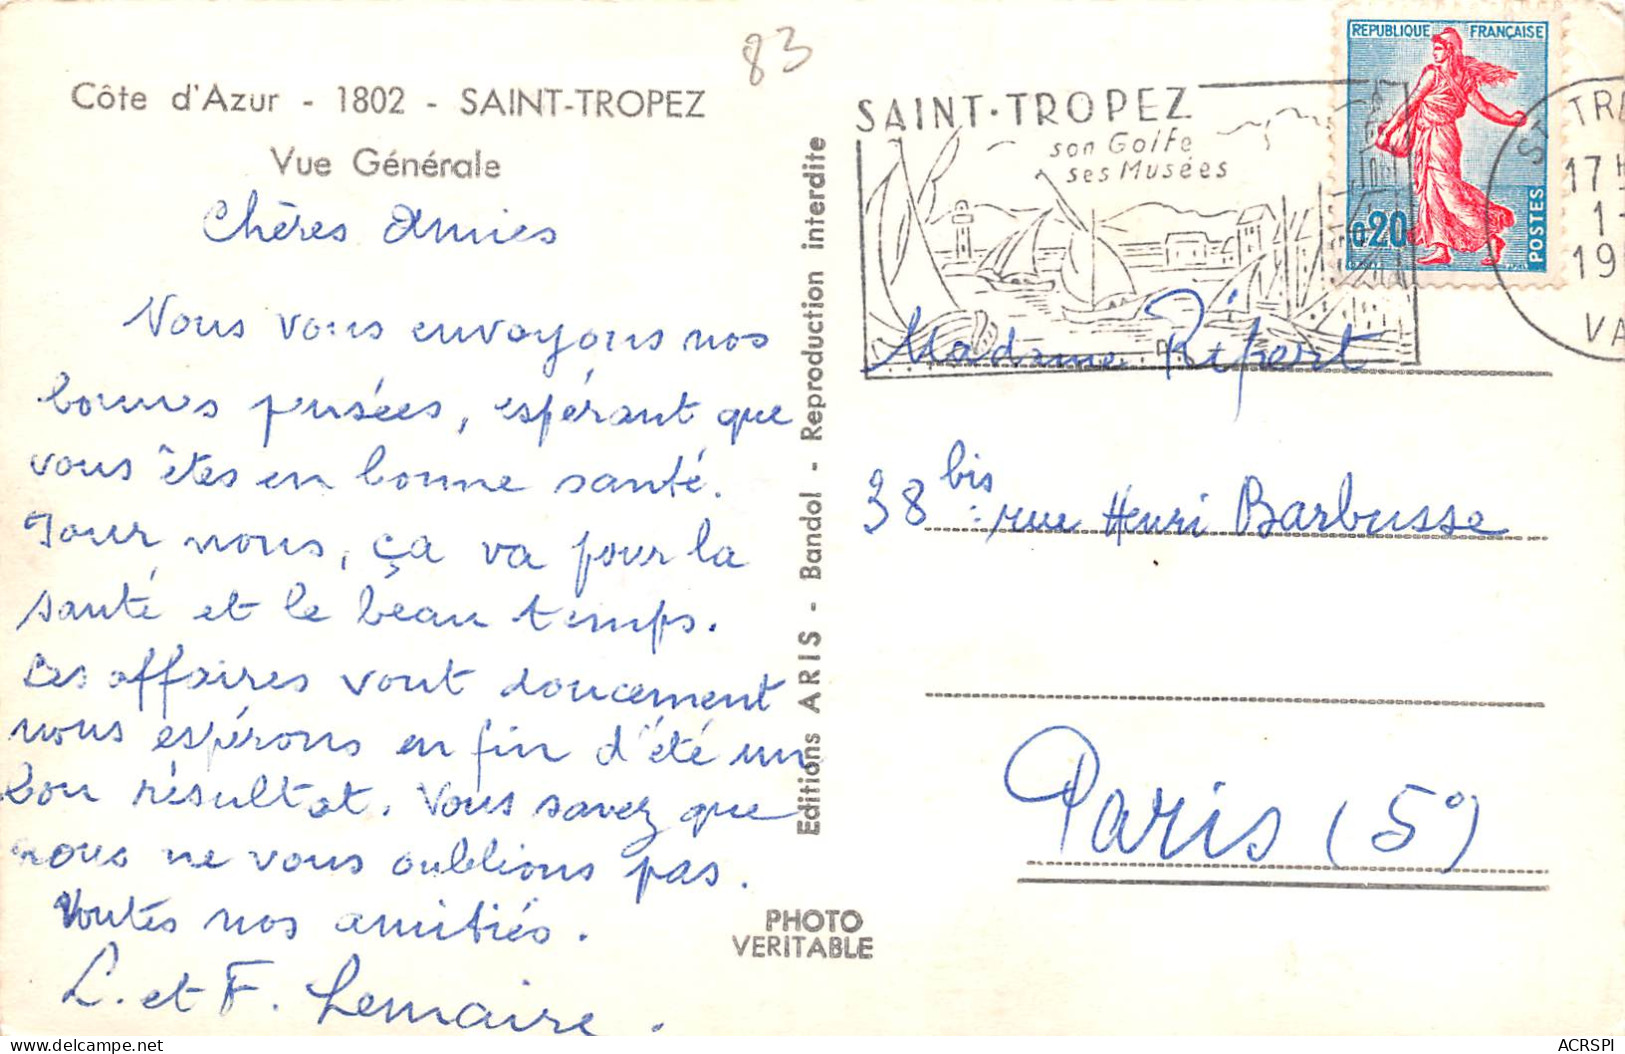 83
Côte d'Azur - 1802 - SAINT-TROPEZ
Vue Générale
Chères Amies
Nous vous envoyons nos
bonnes pensées, espérant que
vous êtes en bonne santé.
Pour nous, ça va pour la
santé et le beau temps.
Les affaires vont doucement
nous espérons en fin d'été un
bon résultat. Vous savez que
nous ne vous oublions pas.
Toutes nos amitiés.
L. et F. Lemaire.
Editions ARIS - Bandol - Reproduction interdite
PHOTO
VERITABLE
SAINT-TROPEZ
son Golfe
ses Musées
REPUBLIQUE FRANÇAISE
0,20
POSTES
ST TR
17 H
1 -
19
VA
Madame Ripert
38 bis rue Henri Barbusse
Paris (5º)
ACRSPI